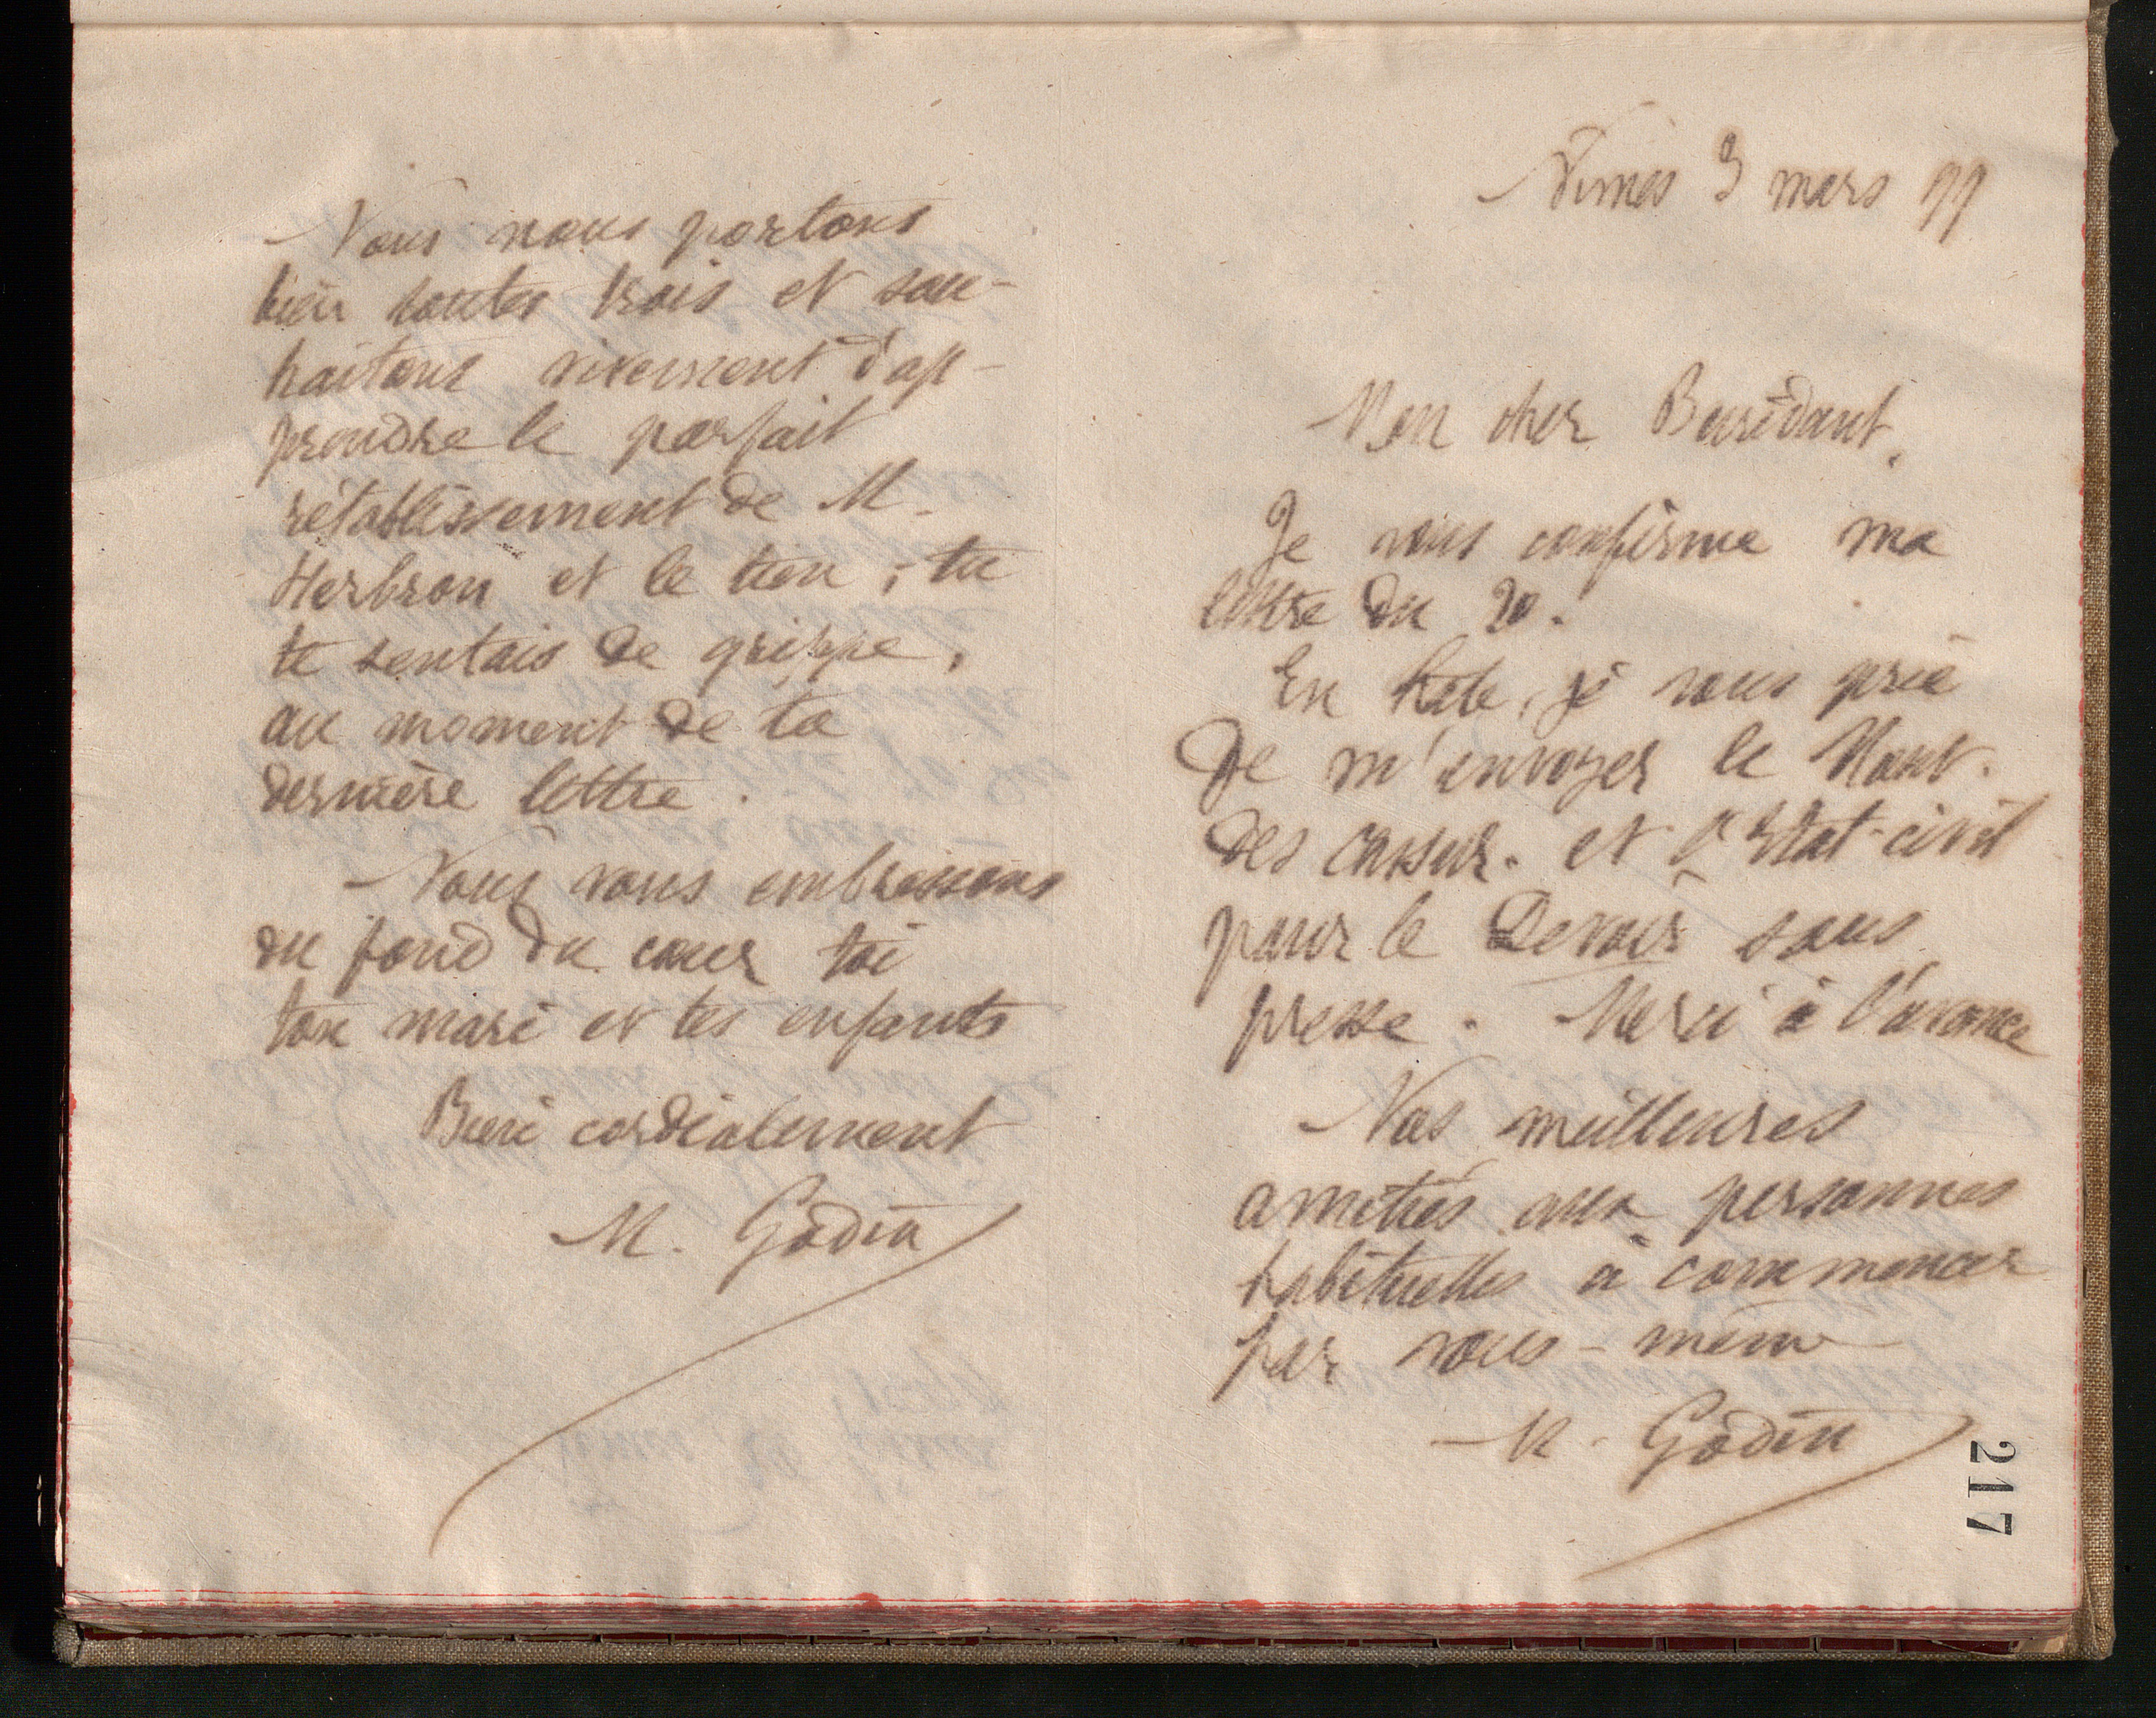 Nous nous portons
bien toutes trois et sou-
haitons vivement d'ap-
prendre le parfait
rétablissement de M.
Herbron et le tien, tu
te sentais de grippe,
au moment de ta
dernière lettre.
Nous vous embrassons
du fond du cœur toi
ton mari et tes enfants
Bien cordialement
M. Godin
Nîmes 3 mars 99
Mon cher Buridant,
Je vous confirme ma
lettre du 20.
En hâte, je vous prie
de m'envoyer le Mouv.
des Assur. et l'Etat-civil
pour le Devoir sous
presse. Merci à l'avance
Nos meilleures
amitiés aux personnes
habituelles à commencer
par vous-même
M. Godin
217